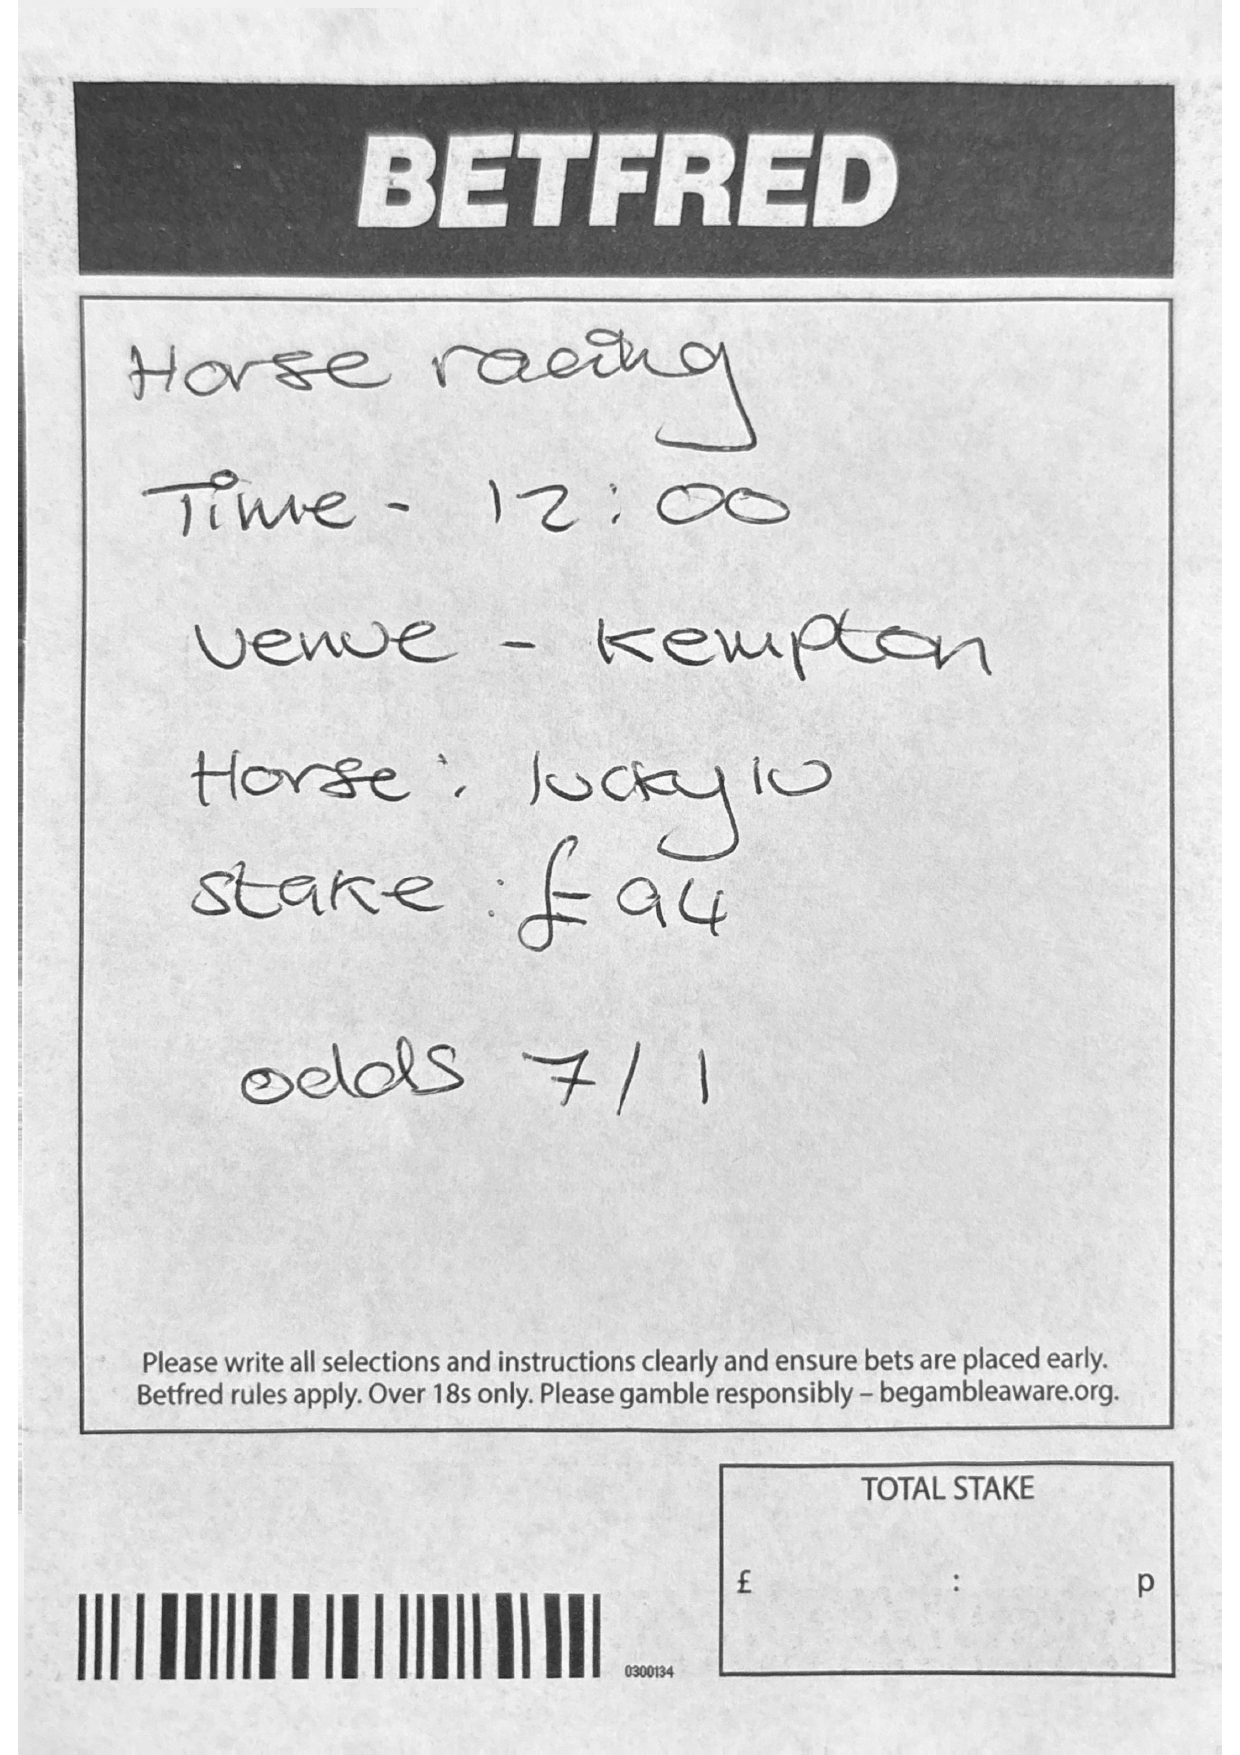 BETFRED
Horse racing
Time - 12:00
Venue - Kempton
Horse: lucky 10
stake : £94
odds 7/1
Please write all selections and instructions clearly and ensure bets are placed early.
Betfred rules apply. Over 18s only. Please gamble responsibly – begambleaware.org.
TOTAL STAKE
£ : p
0300134